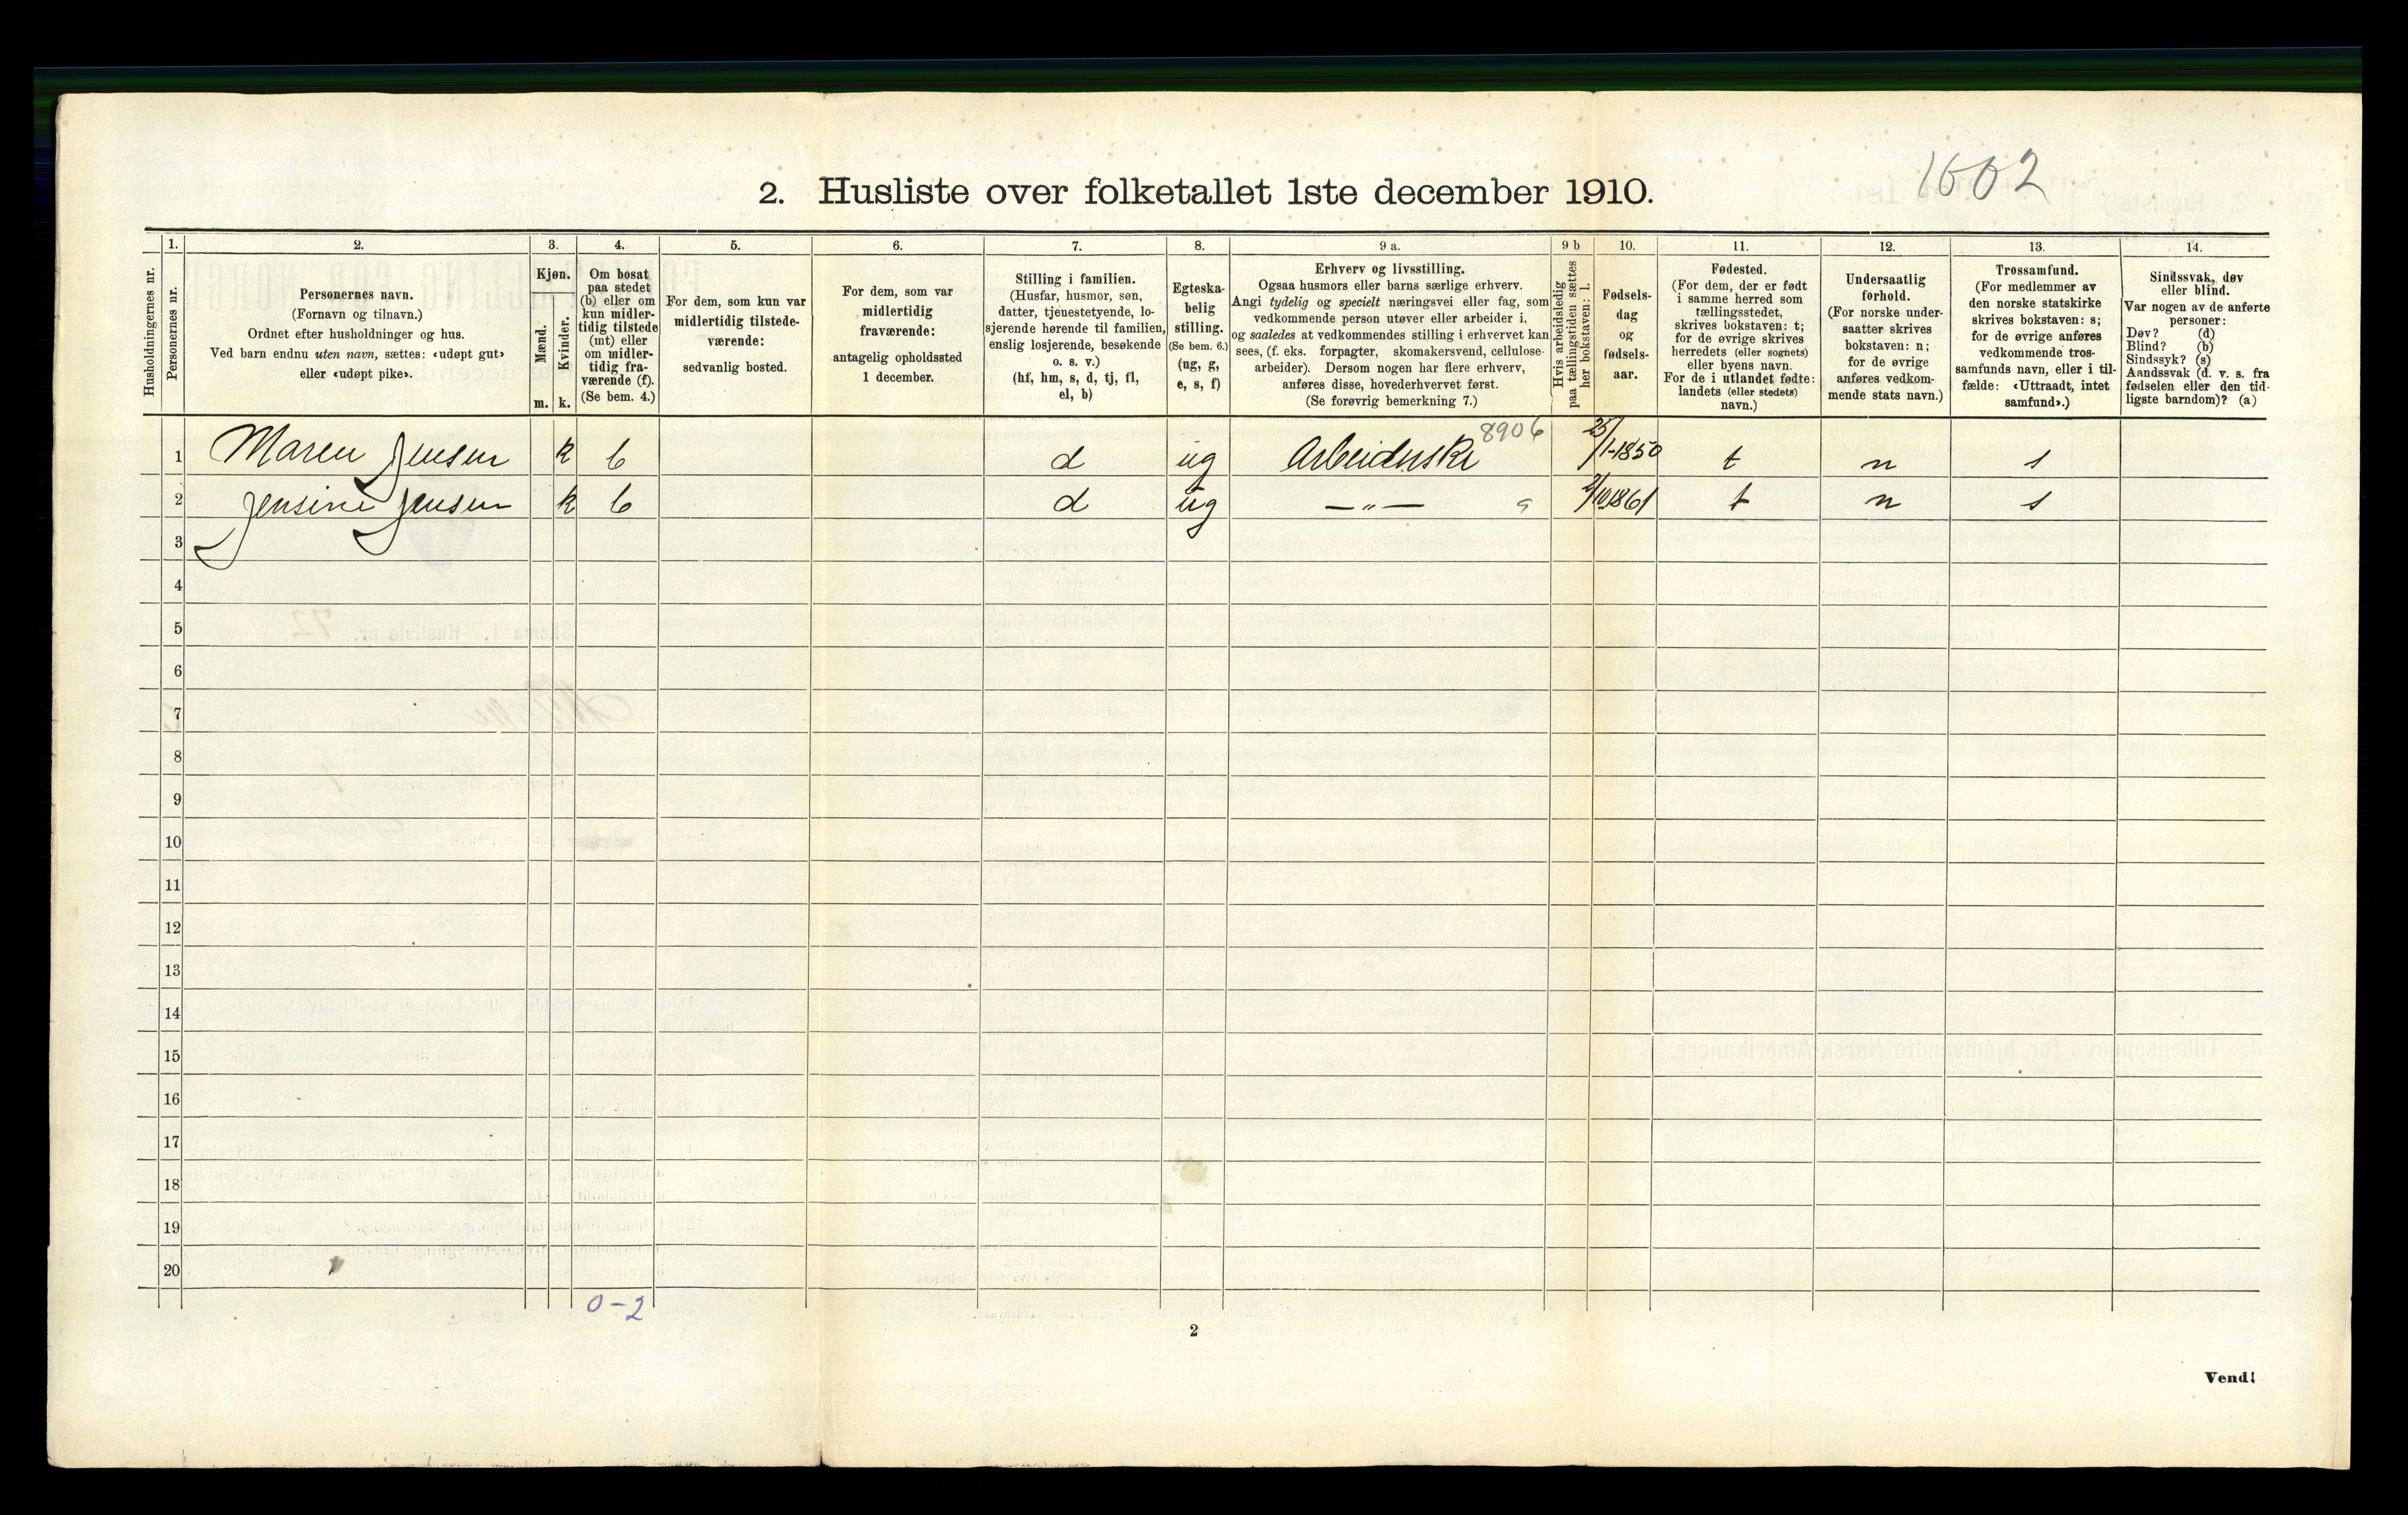 1602
2. Husliste over folketallet 1ste december 1910.
1. 2. 3. 4. 5. 6. 7. 8. 9 a. 9 b 10. 11. 12. 13. 14.
Husholdningernes nr.
Personernes nr.
Personernes navn.
(Fornavn og tilnavn.)
Ordnet efter husholdninger og hus.
Ved barn endnu uten navn, sættes: «udøpt gut»
eller «udøpt pike».
Kjøn.
Mænd.
Kvinder.
m. k.
Om bosat
paa stedet
(b) eller om
kun midler-
tidig tilstede
(mt) eller
om midler-
tidig fra-
værende (f).
(Se bem. 4.)
For dem, som kun var
midlertidig tilstede-
værende:
sedvanlig bosted.
For dem, som var
midlertidig
fraværende:
antagelig opholdssted
1 december.
Stilling i familien.
(Husfar, husmor, søn,
datter, tjenestetyende, lo-
sjerende hørende til familien,
enslig losjerende, besøkende
o. s. v.)
(hf, hm, s, d, tj, fl,
el, b)
Egteska-
belig
stilling.
(Se bem. 6.)
(ug, g,
e, s, f)
Erhverv og livsstilling.
Ogsaa husmors eller barns særlige erhverv.
Angi tydelig og specielt næringsvei eller fag, som
vedkommende person utøver eller arbeider i,
og saaledes at vedkommendes stilling i erhvervet kan
sees, (f. eks. forpagter, skomakersvend, cellulose-
arbeider). Dersom nogen har flere erhverv,
anføres disse, hovederhvervet først.
(Se forøvrig bemerkning 7.)
Hvis arbeidsledig
paa tællingstiden sættes
her bokstaven: l.
Fødsels-
dag
og
fødsels-
aar.
Fødested.
(For dem, der er født
i samme herred som
tællingsstedet,
skrives bokstaven: t;
for de øvrige skrives
herredets (eller sognets)
eller byens navn.
For de i utlandet fødte:
landets (eller stedets)
navn.)
Undersaatlig
forhold.
(For norske under-
saatter skrives
bokstaven: n;
for de øvrige
anføres vedkom-
mende stats navn.)
Trossamfund.
(For medlemmer av
den norske statskirke
skrives bokstaven: s;
for de øvrige anføres
vedkommende tros-
samfunds navn, eller i til-
fælde: «Uttraadt, intet
samfund».)
Sindssvak, døv
eller blind.
Var nogen av de anførte
personer:
Døv? (d)
Blind? (b)
Sindssyk? (s)
Aandssvak (d. v. s. fra
fødselen eller den tid-
ligste barndom)? (a)
8906
1 Maren Jensen k b d ug Arbeiderske 25/1-1850 t n s
2 Jensine Jensen k b d ug —"— 2/10 1861 t n s
3
4
5
6
7
8
9
10
11
12
13
14
15
16
17
18
19
20
0-2
2
Vend!